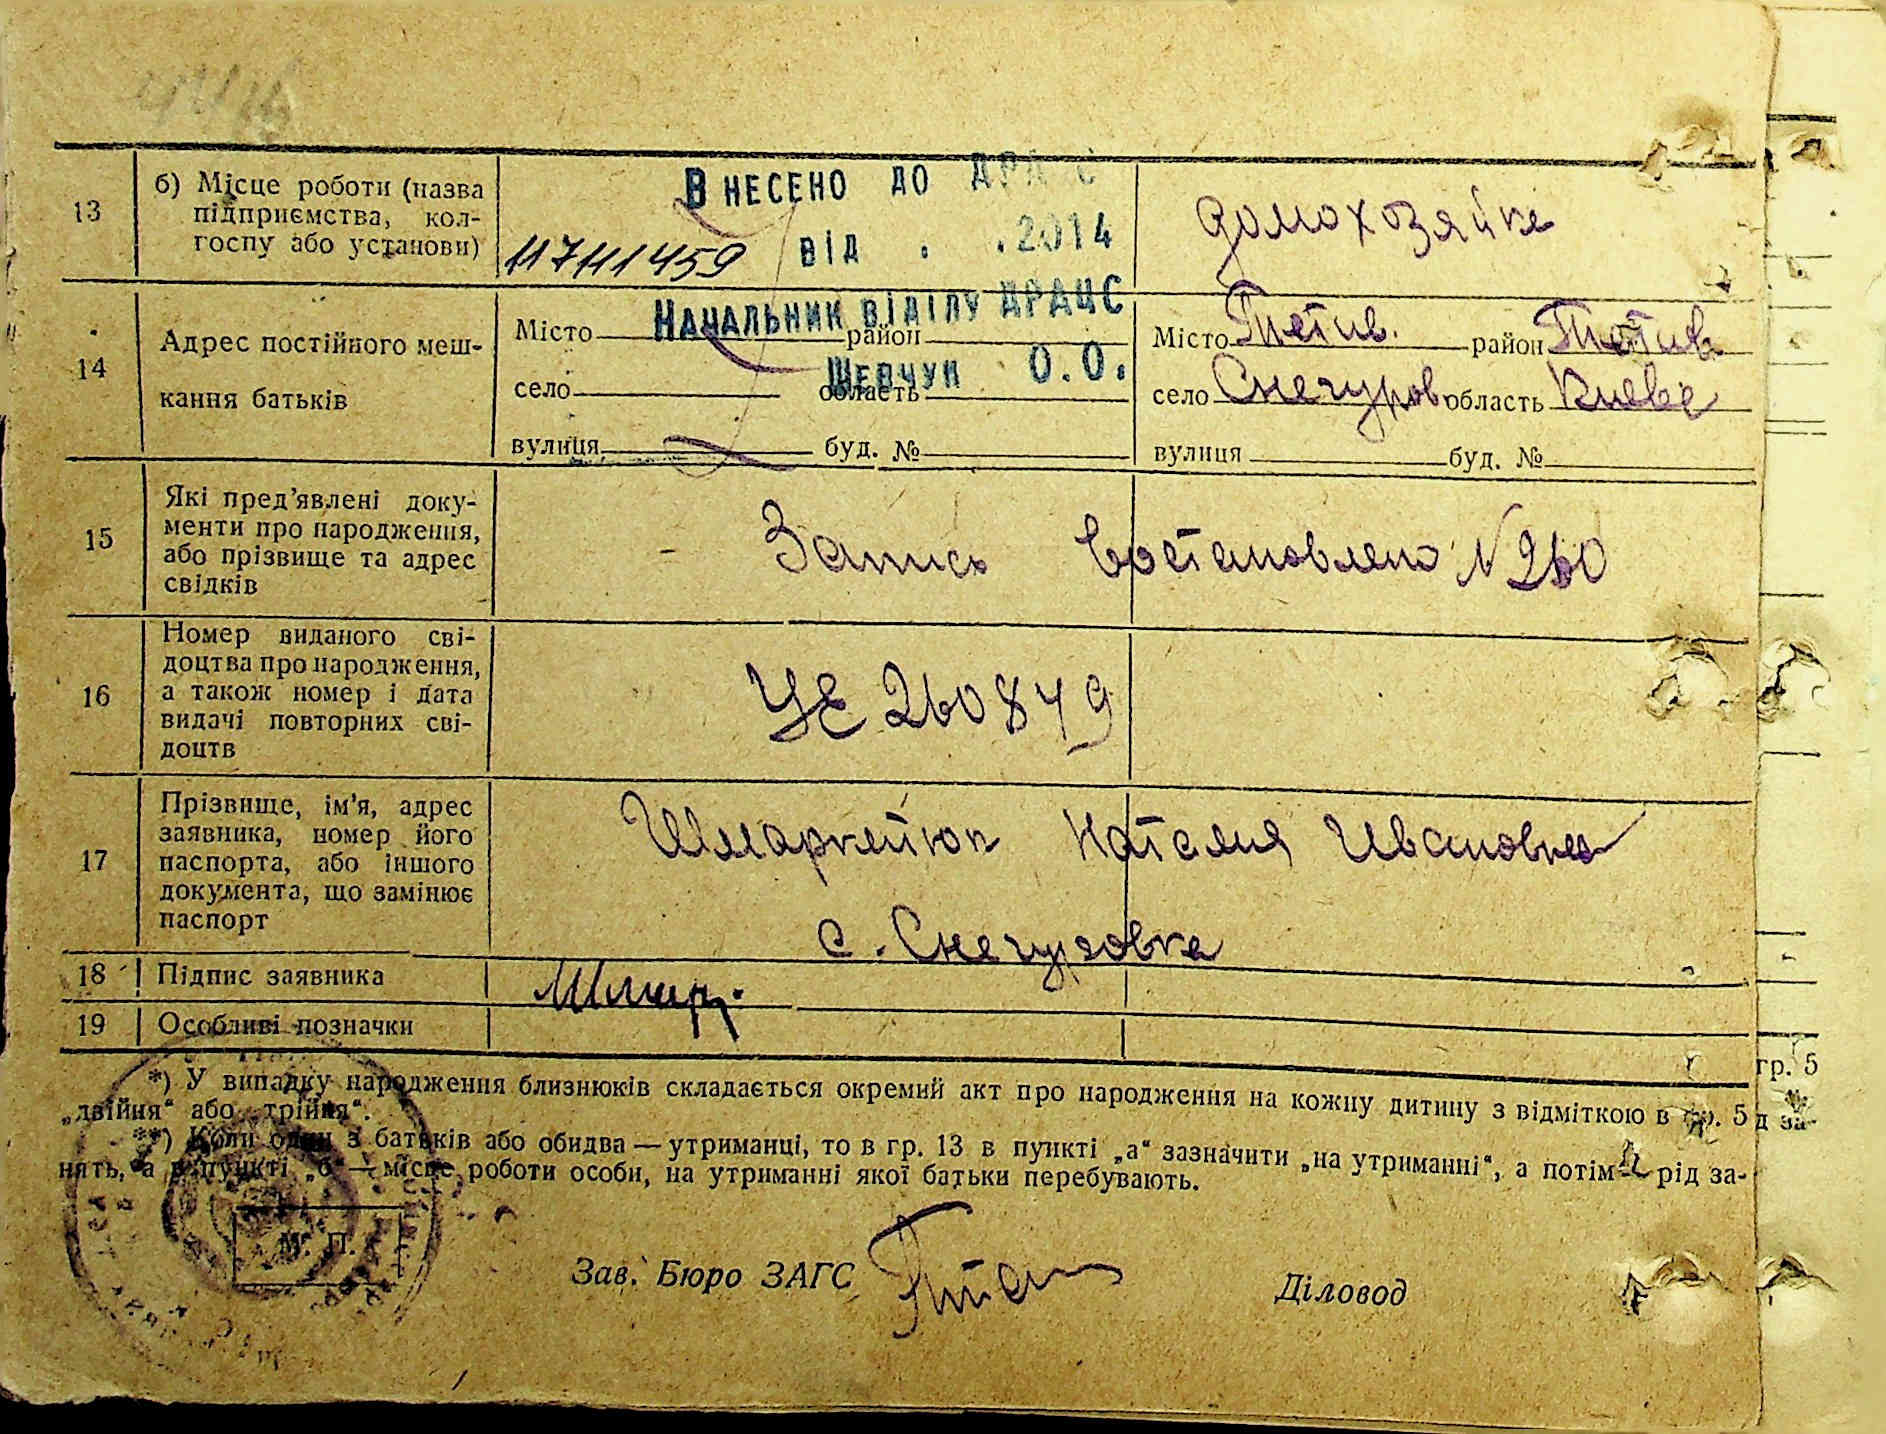 13
б) Місце роботи (назва
підприємства, кол-
госпу або установи)
Внесено до ДРАЦС
117111459 від . .2014
Начальник відділу ДРАЦС
Шевчук О.О.
домохозяйка
14
Адрес постійного меш-
кання батьків
Місто район
село область
вулиця буд. №
Місто Тетив. район Тетив
село Снегуров область Киев
вулиця буд. №
15
Які пред'явлені доку-
менти про народження,
або прізвище та адрес
свідків
- Запись востановлено №260
16
Номер виданого сві-
доцтва про народження,
а також номер і дата
видачі повторних сві-
доцтв
УЕ 260849
17
Прізвище, ім'я, адрес
заявника, номер його
паспорта, або іншого
документа, що замінює
паспорт
Наталия Ивановна
с. Снегуровка
18
Підпис заявника
19
Особливі позначки
*) У випадку народження близнюків складається окремий акт про народження на кожну дитину з відміткою в гр. 5
„двійня“ або „трійня“.
**) Коли один з батьків або обидва — утриманці, то в гр. 13 в пункті „а“ зазначити „на утриманні“, а потім рід за-
нять, а в пункті „б“ — місце роботи особи, на утриманні якої батьки перебувають.
гр. 5
д за-
М. П.
Зав. Бюро ЗАГС
Діловод